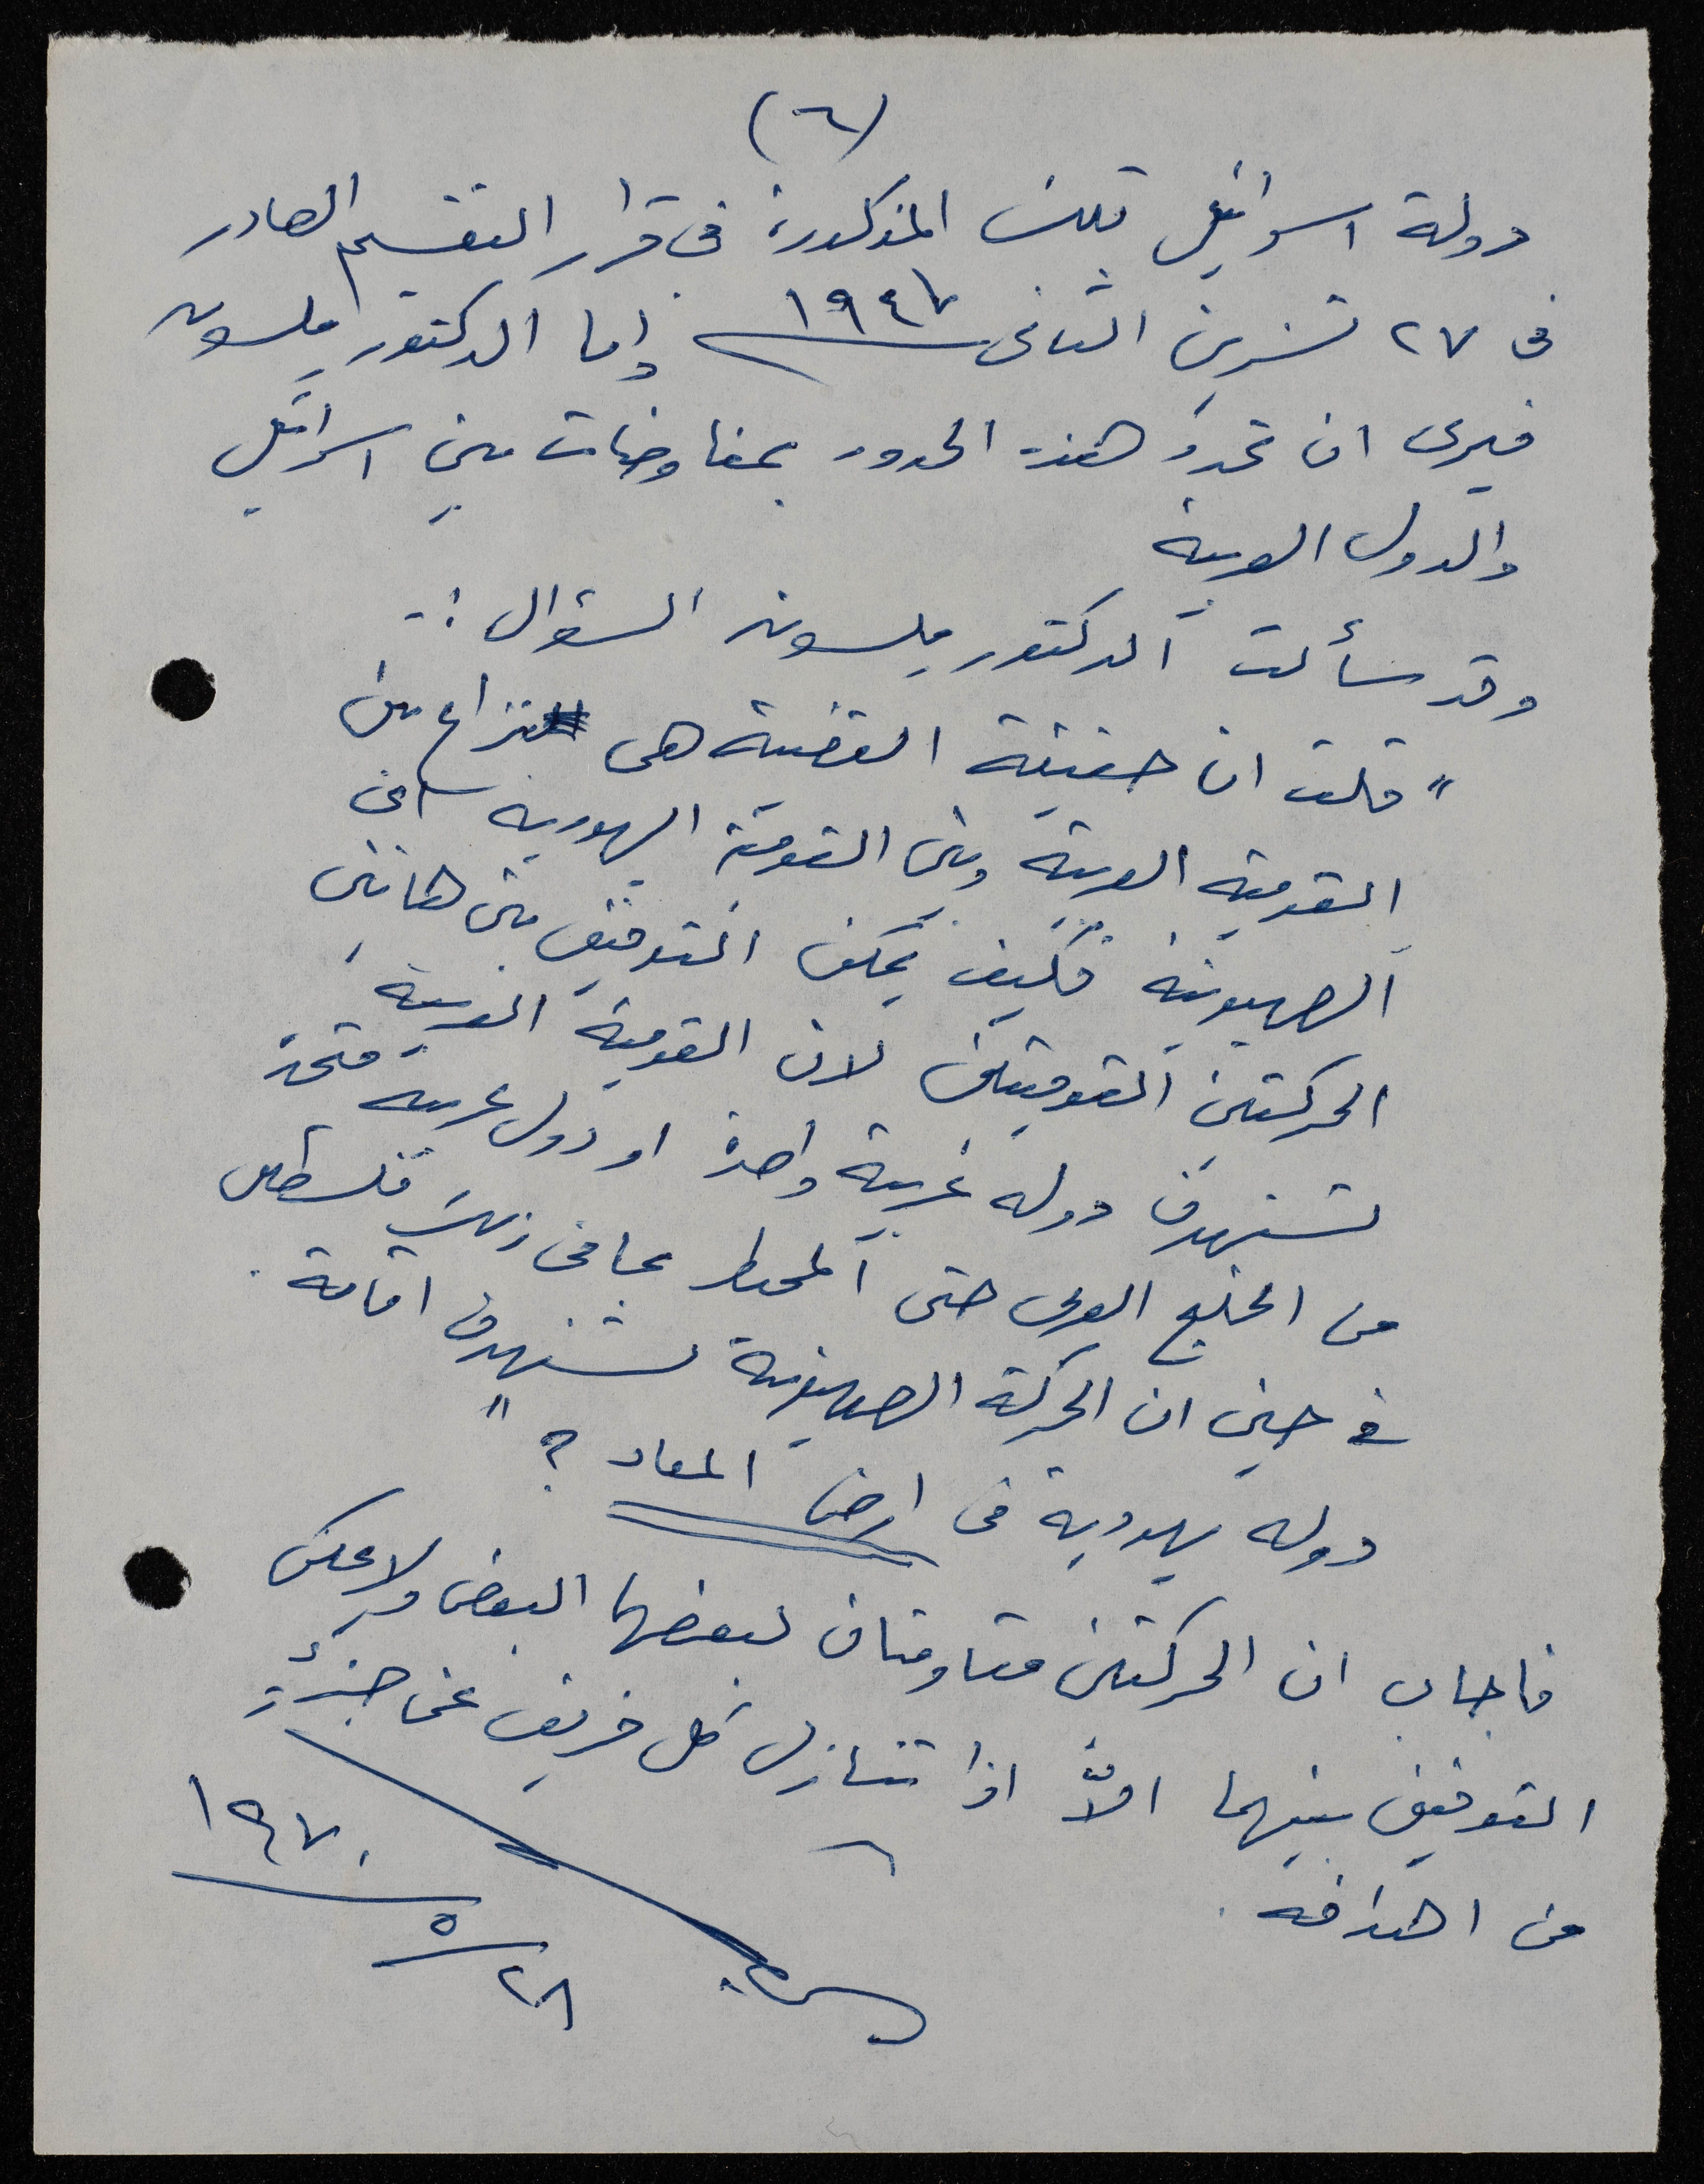 (٦)
دولة اسرائيل تلك المذكورة في قرار التقسيم الصادر
في ٢٧ تشرين الثاني ١٩٤٧ واما الدكتور ملسون
فيرى ان تحدد هذه الحدود بمفاوضات بين اسرائيل
والدول العربية
وقد سألت الدكتور ملسون السؤال :-
" قلت ان حقيقة القضية هي نزاع بين
القومية العربية وبين القومية اليهودية اي
الصهيونية فكيف يمكن التوفيق بين هاتين
الحركتين القوميتين لان القومية العربية
تستهدف دولة عربية واحدة او دول عربية متحدة
من الخليج العربي حتى المحيط بما في ذلك فلسطين
في حين ان الحركة الصهيونية تستهدف اقامة
دولة يهودية في ارض المعاد ؟ "
فاجاب ان الحركتين مقاومتان لبعضهما البعض ولا يمكن
التوفيق بينهما الاّ اذا تنازل كل فريق عن جزءٍ
من اهدافه .
٢٨/٥/١٩٧٠